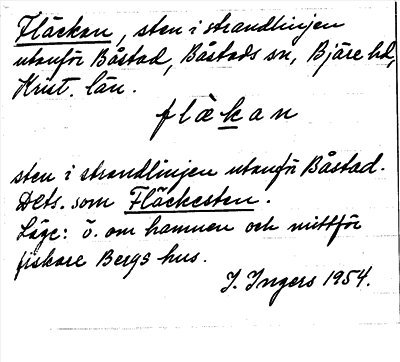 Fläckan, sten i strandlinjen
utanför Båstad, Båstads sn, Bjäre hd,
Krist. län.
flàkan
sten i strandlinjen utanför Båstad.
Dets. som Fläckesten.
Läge: ö. om hamnen och mittför
fiskare Bergs hus.
I. Ingers 1954.